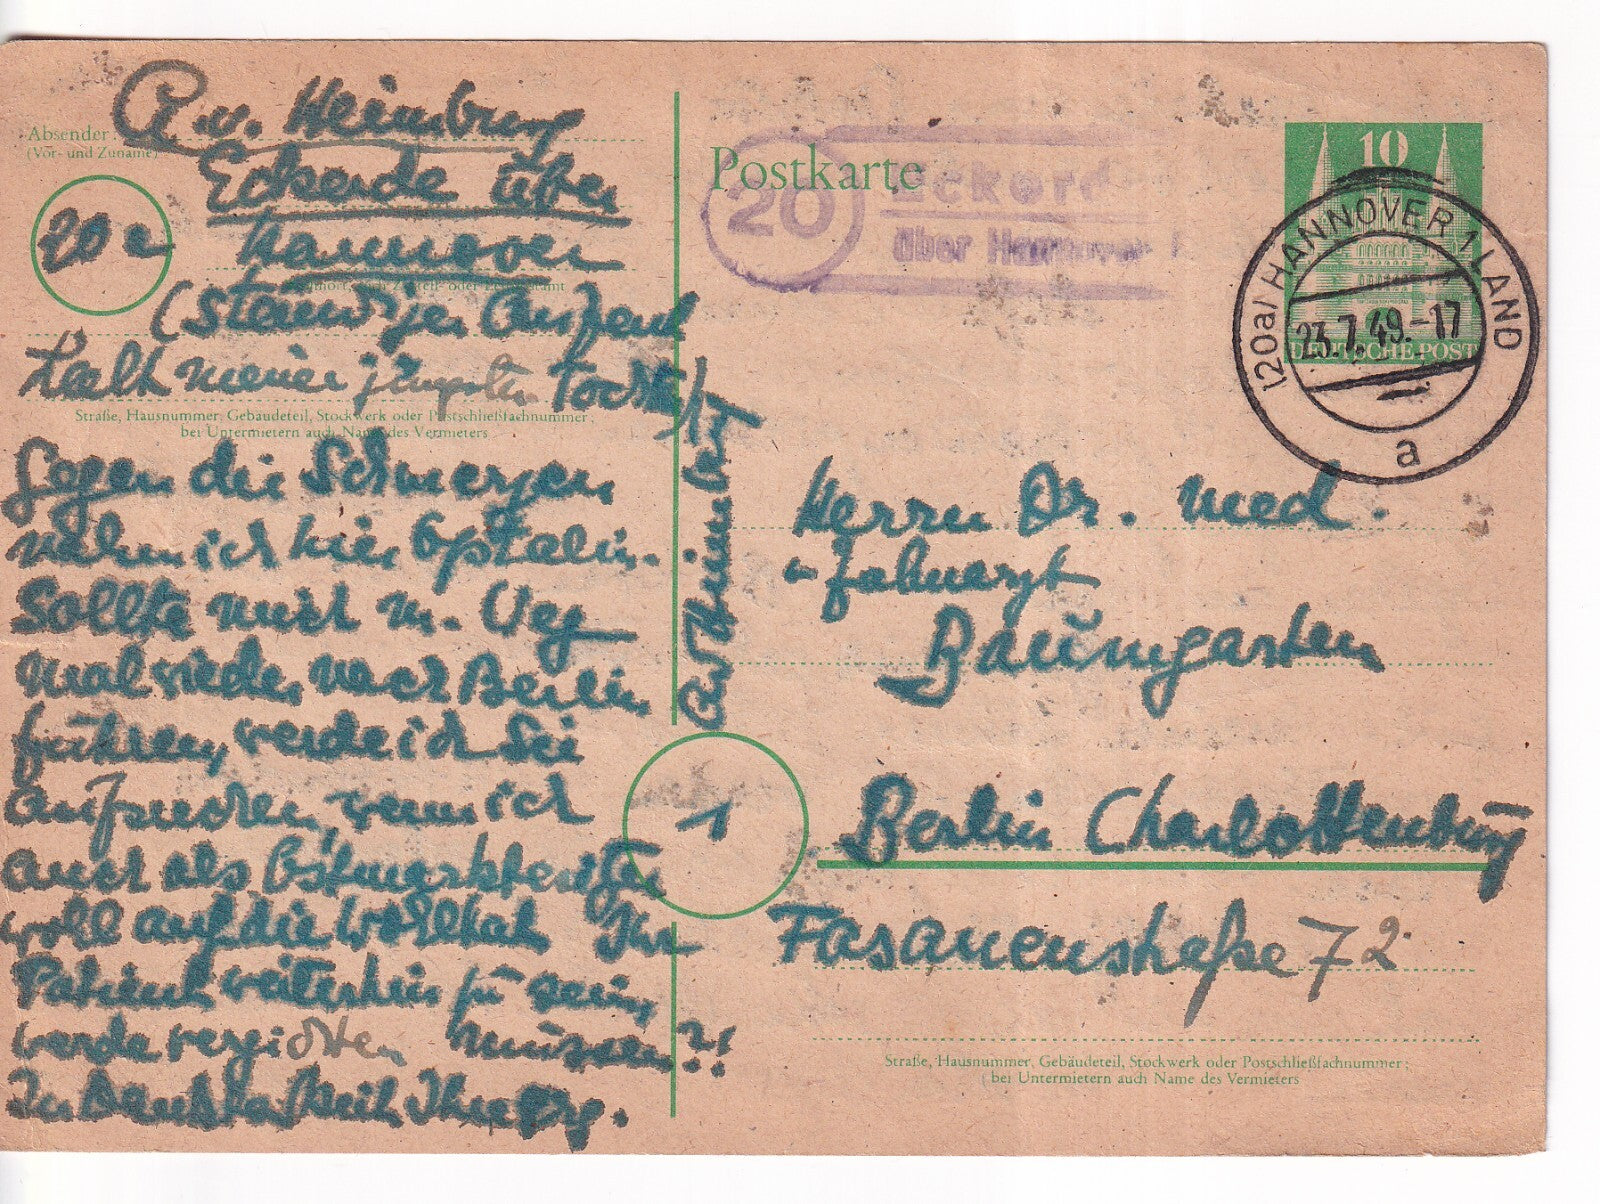 Absender
(Vor- und Zuname)
A. v. Heimburg
Eckerde über
Hannover
20 a
(ständiger Aufent
halt meiner jüngsten Tochter)
Straße, Hausnummer, Gebäudeteil, Stockwerk oder Postschließfachnummer;
bei Untermietern auch Name des Vermieters
Gegen die Schmerzen
nahm ich hier Optalin.
Sollte mich m. Weg
mal wieder nach Berlin
führen, werde ich Sie
aufsuchen, wenn ich
auch als Ostmarkbesitzer
wohl auf die Wohltat Ihr
Patient weiterhin zu sein,
werde verzichten müssen?!
In Dankbarkeit Ihr
AvHeimburg
Postkarte
20
Eckerd
über Hannover
10
DEUTSCHE POST
(20a) HANNOVER 1 LAND
23.7.49.-17
a
Herrn Dr. med.
Zahnarzt
Baumgarten
1
Berlin Charlottenburg
Fasanenstraße 72
Straße, Hausnummer, Gebäudeteil, Stockwerk oder Postschließfachnummer;
bei Untermietern auch Name des Vermieters